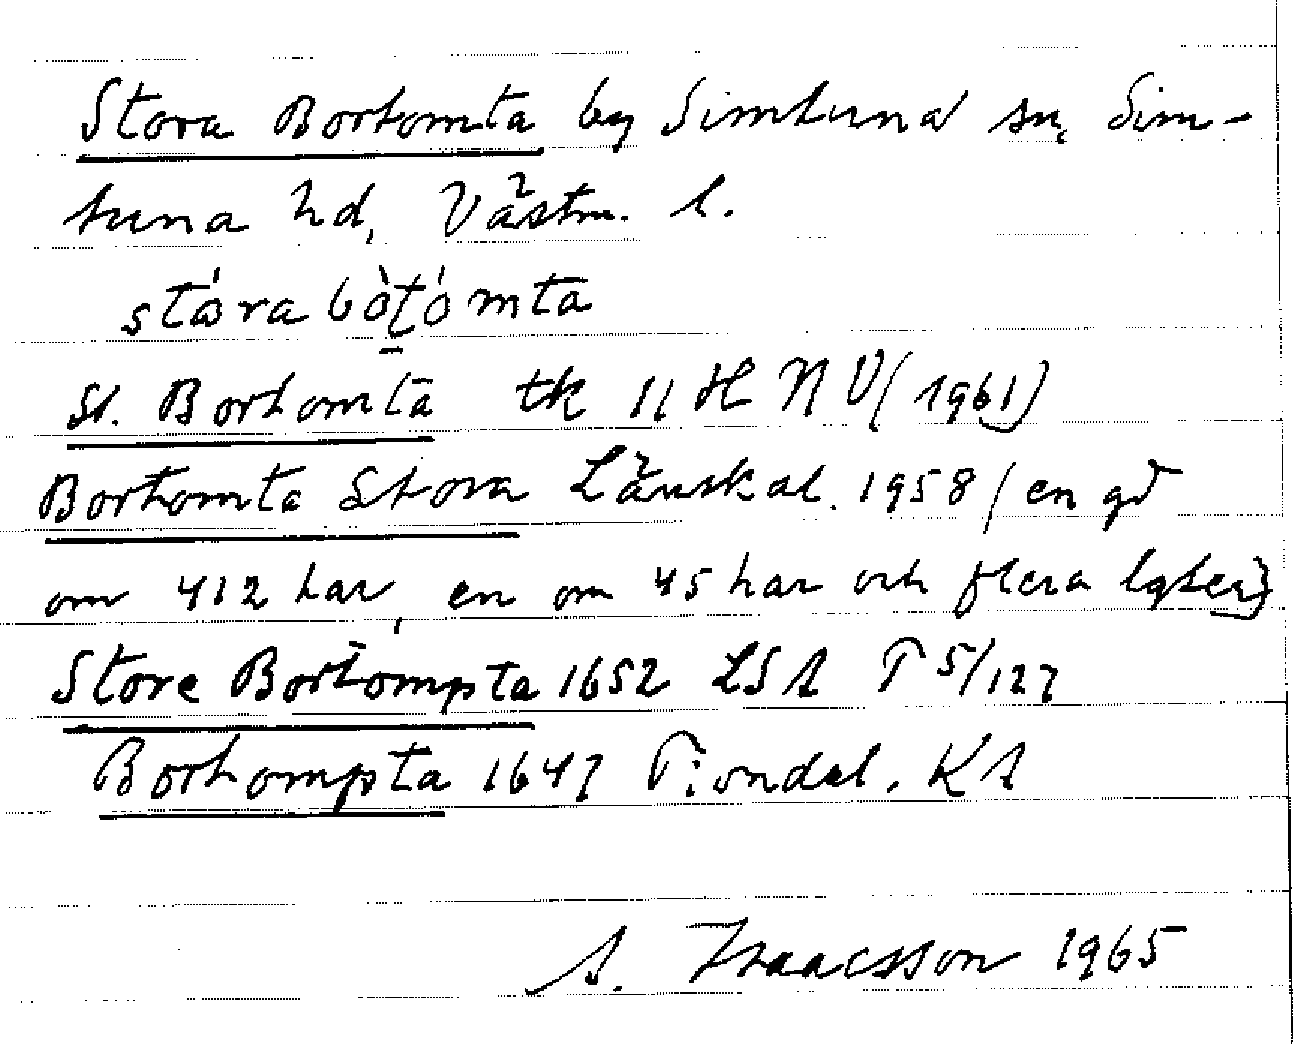 Stora Bortomta by Simtuna sn, Sim-
tuna hd, Västm. l.
stóra bòt̩ómta
St. Bortomta tk 11 H NV (1961)
Bortomta Stora Länskal. 1958 (en gd
om 412 har, en om 45 har och flera lgter)
Store Bortompta 1652 LSA T 5/127
Bortompta 1647 Tiondel. KA
A. Isaacsson 1965